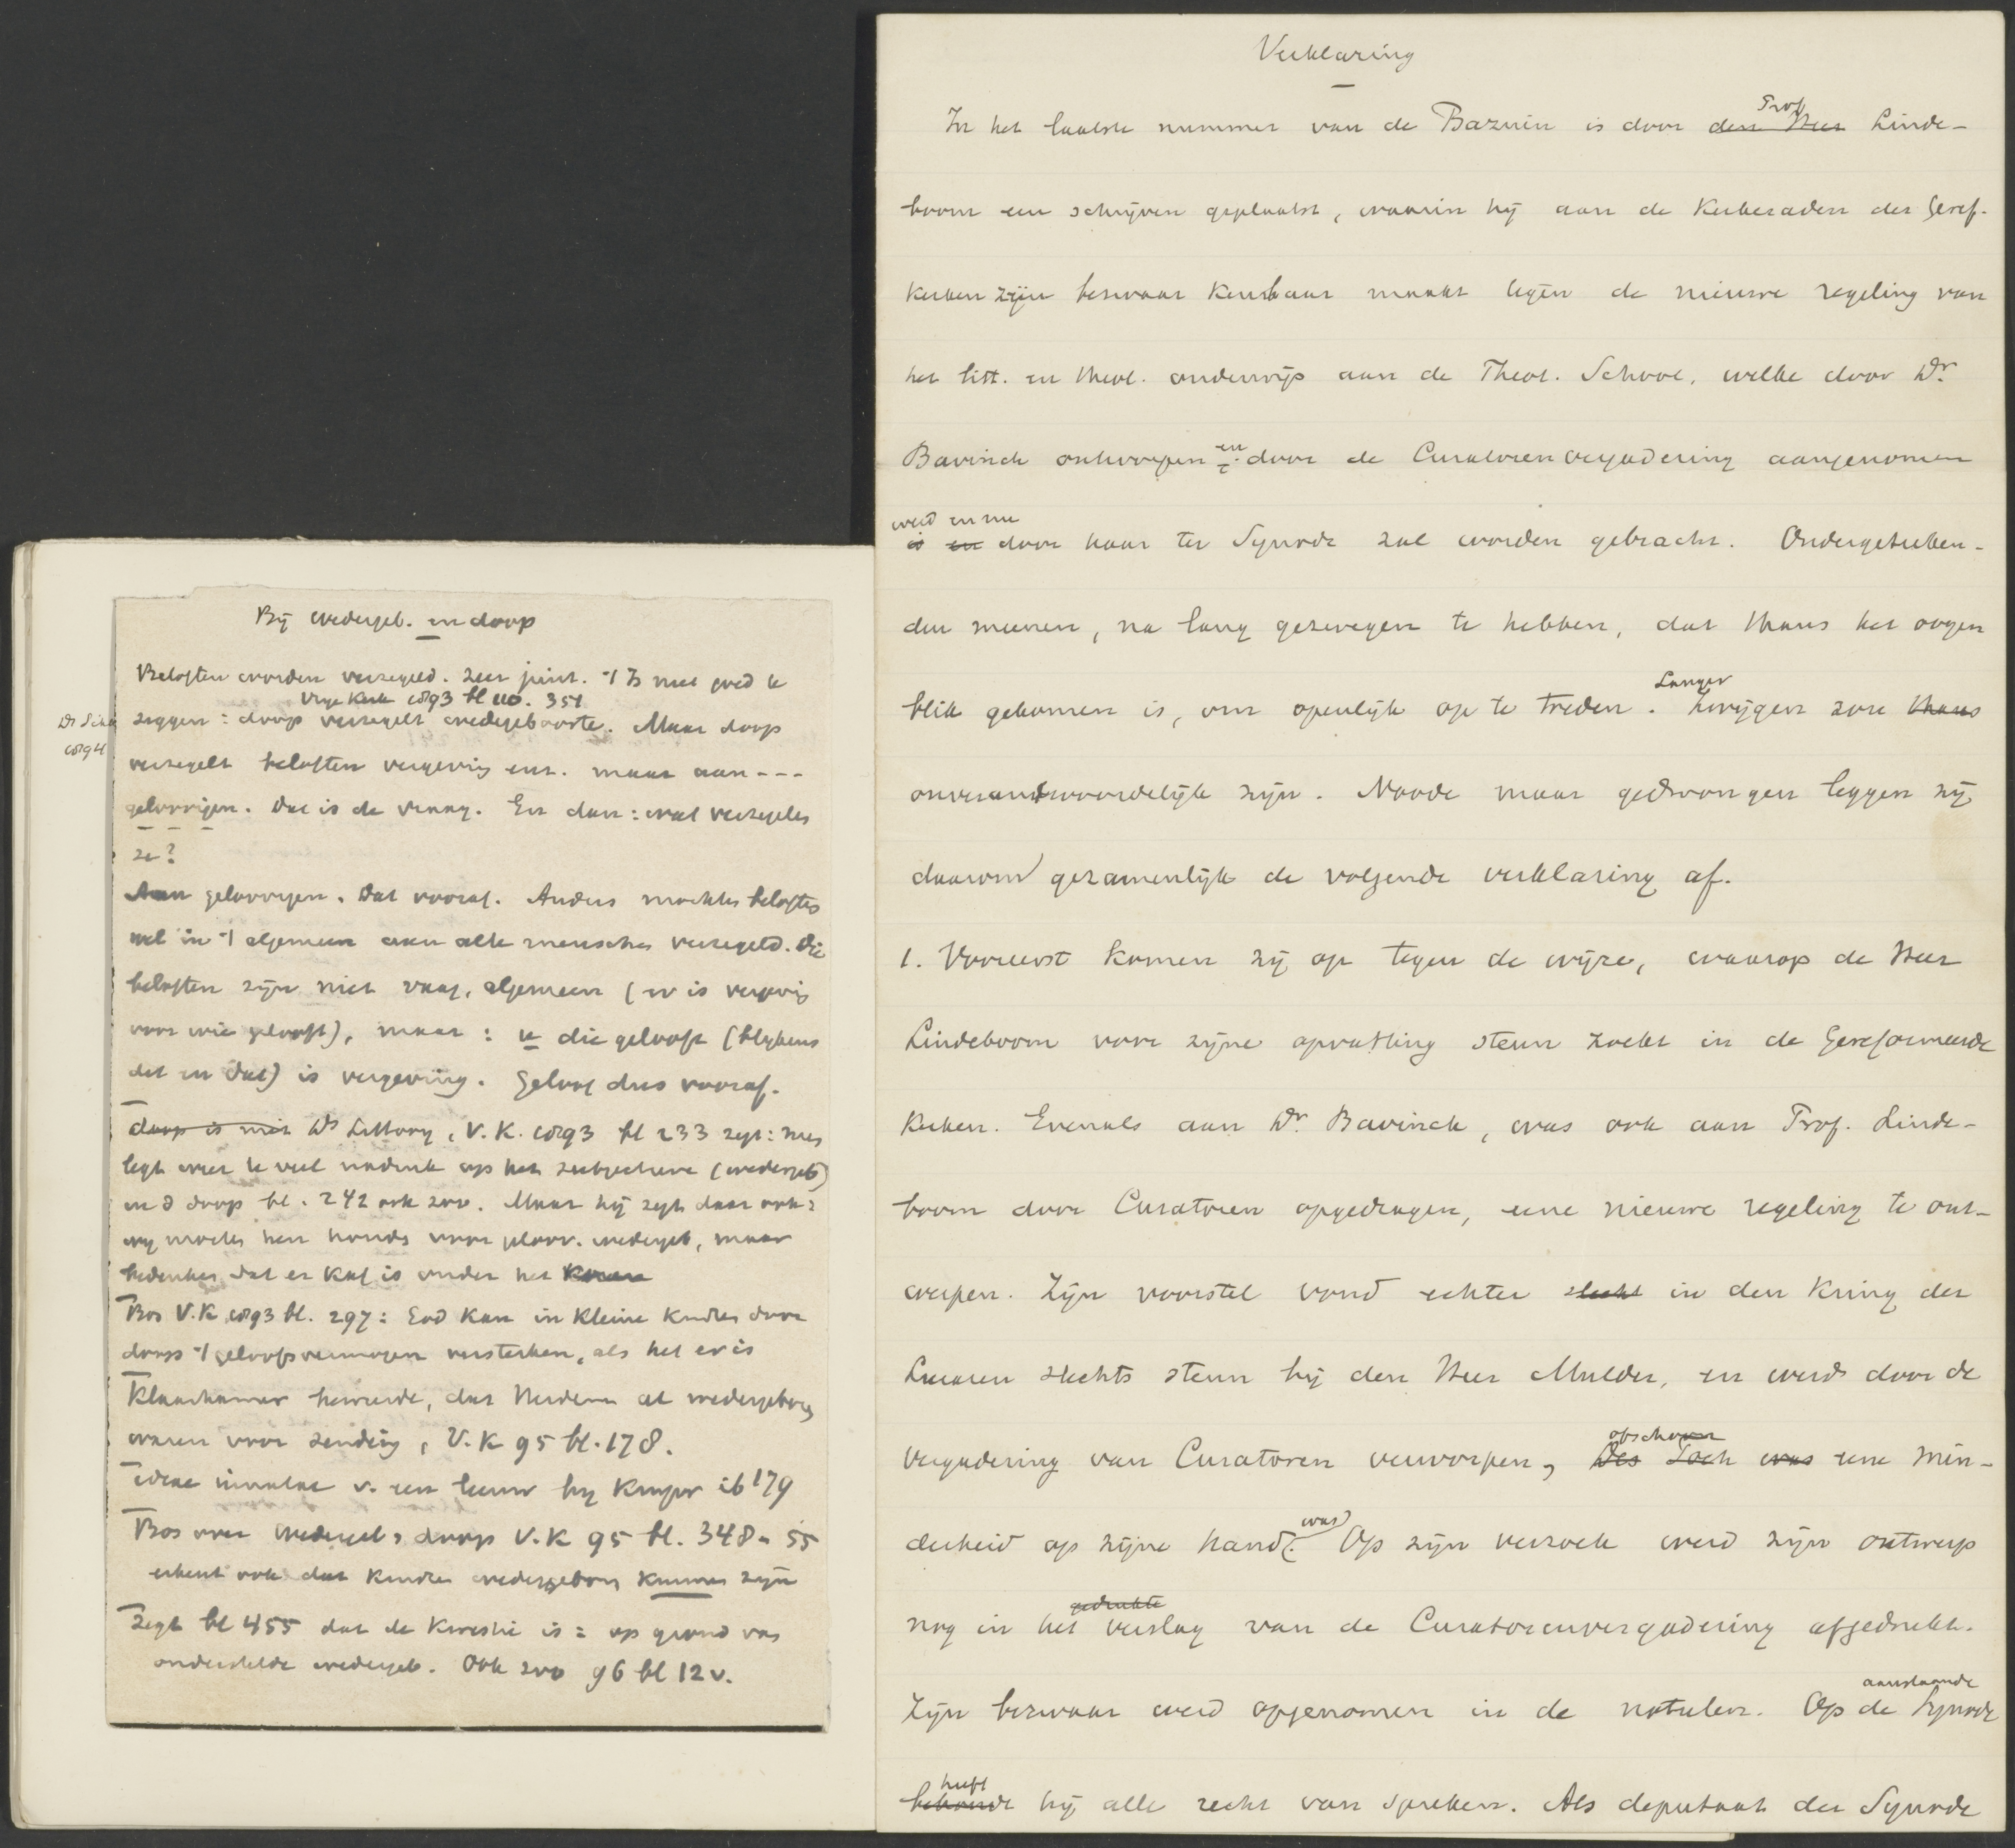 Bij wedergeb. en doop
Beloften worden verzegeld. Zeer juist. 't Is niet goed te
Vrije Kerk 1893 bl 110. 351
zeggen: doop verzegelt wedergeboorte. Maar doop
1894
verzegelt beloften vergeving enz. maar aan - - -
geloovigen. Dat is de vraag. En dan: wat verzegelen
ze?
Aan geloovigen. Dat vooraf. Anders mochten beloften
wel in 't algemeen aan alle menschen verzegeld. Die
beloften zijn niet vaag, algemeen (er is vergeving
voor wie gelooft), maar: u die gelooft (blijkens
dit en dat) is vergeving. Geloof dus vooraf.
doop is niet Ds Littooy, V.K. 1893 bl 233 zegt: men
legt weer te veel nadruk op het subjectieve (wedergeb)
in d doop bl. 242 ook zoo. Maar hij zegt daar ook:
wij moeten hen houden voor geloov. wedergeb, maar
bedenken dat er kaf is onder het koren
Bos V.K 1893 bl. 297: God kan in kleine kindren door
doop 't geloofsvermogen versterken, als het er is
Klaarhamer beweerde, dat Heidenen al wedergeboren
waren voor zending, V.K 95 bl. 178.
v. een leeuw bij Kuyper ib 179
Bos over wedergeb & doop V.K 95 bl. 348 - 55
erkent ook dat kindren wedergeboren kunnen zijn
Zegt bl 455 dat de kwestie is: op grond van
onderstelde wedergeb. Ook zoo 96 bl 12 v.
Verklaring
Prof
In het laatste nummer van de Bazuin is door den Heer Linde-
boom een schrijven geplaatst, waarin hij aan de Kerkeraden der Geref.
Kerken zijn bezwaar kenbaar maakt tegen de nieuwe regeling van
het litt. en theol. onderwijs aan de Theol. School, welke door Dr.
Bavinck ontworpen en door de Curatorenvergadering aangenomen
werd en nu
is en door haar ter Synode zal worden gebracht. Ondergeteeken-
den meenen, na lang gezwegen te hebben, dat thans het oogen
blik gekomen is, om openlijk op te treden. Langer zwijgen zou thans
onverantwoordelijk zijn. Noode maar gedwongen leggen zij
daarom gezamenlijk de volgende verklaring af.
1. Vooreerst komen zij op tegen de wijze, waarop de Heer
Lindeboom voor zijne opvatting steun zoekt in de Gereformeerde
Kerken. Evenals aan Dr. Bavinck, was ook aan Prof. Linde-
boom door Curatoren opgedragen, eene nieuwe regeling te ont-
werpen. Zijn voorstel vond echter slecht in den kring der
Leeraren slechts steun bij den Heer Mulder, en werd door de
vergadering van Curatoren verworpen, Des Toch was ofschoon eene min-
derheid op zijne hand was. Op zijn verzoek werd zijn ontwerp
nog in het gedrukte verslag van de Curatorenvergadering afgedrukt.
Zijn bezwaar werd opgenomen in de notulen. Op de aanstaande Synode
heeft
behoude hij alle recht van spreken. Als deputaat der Synode